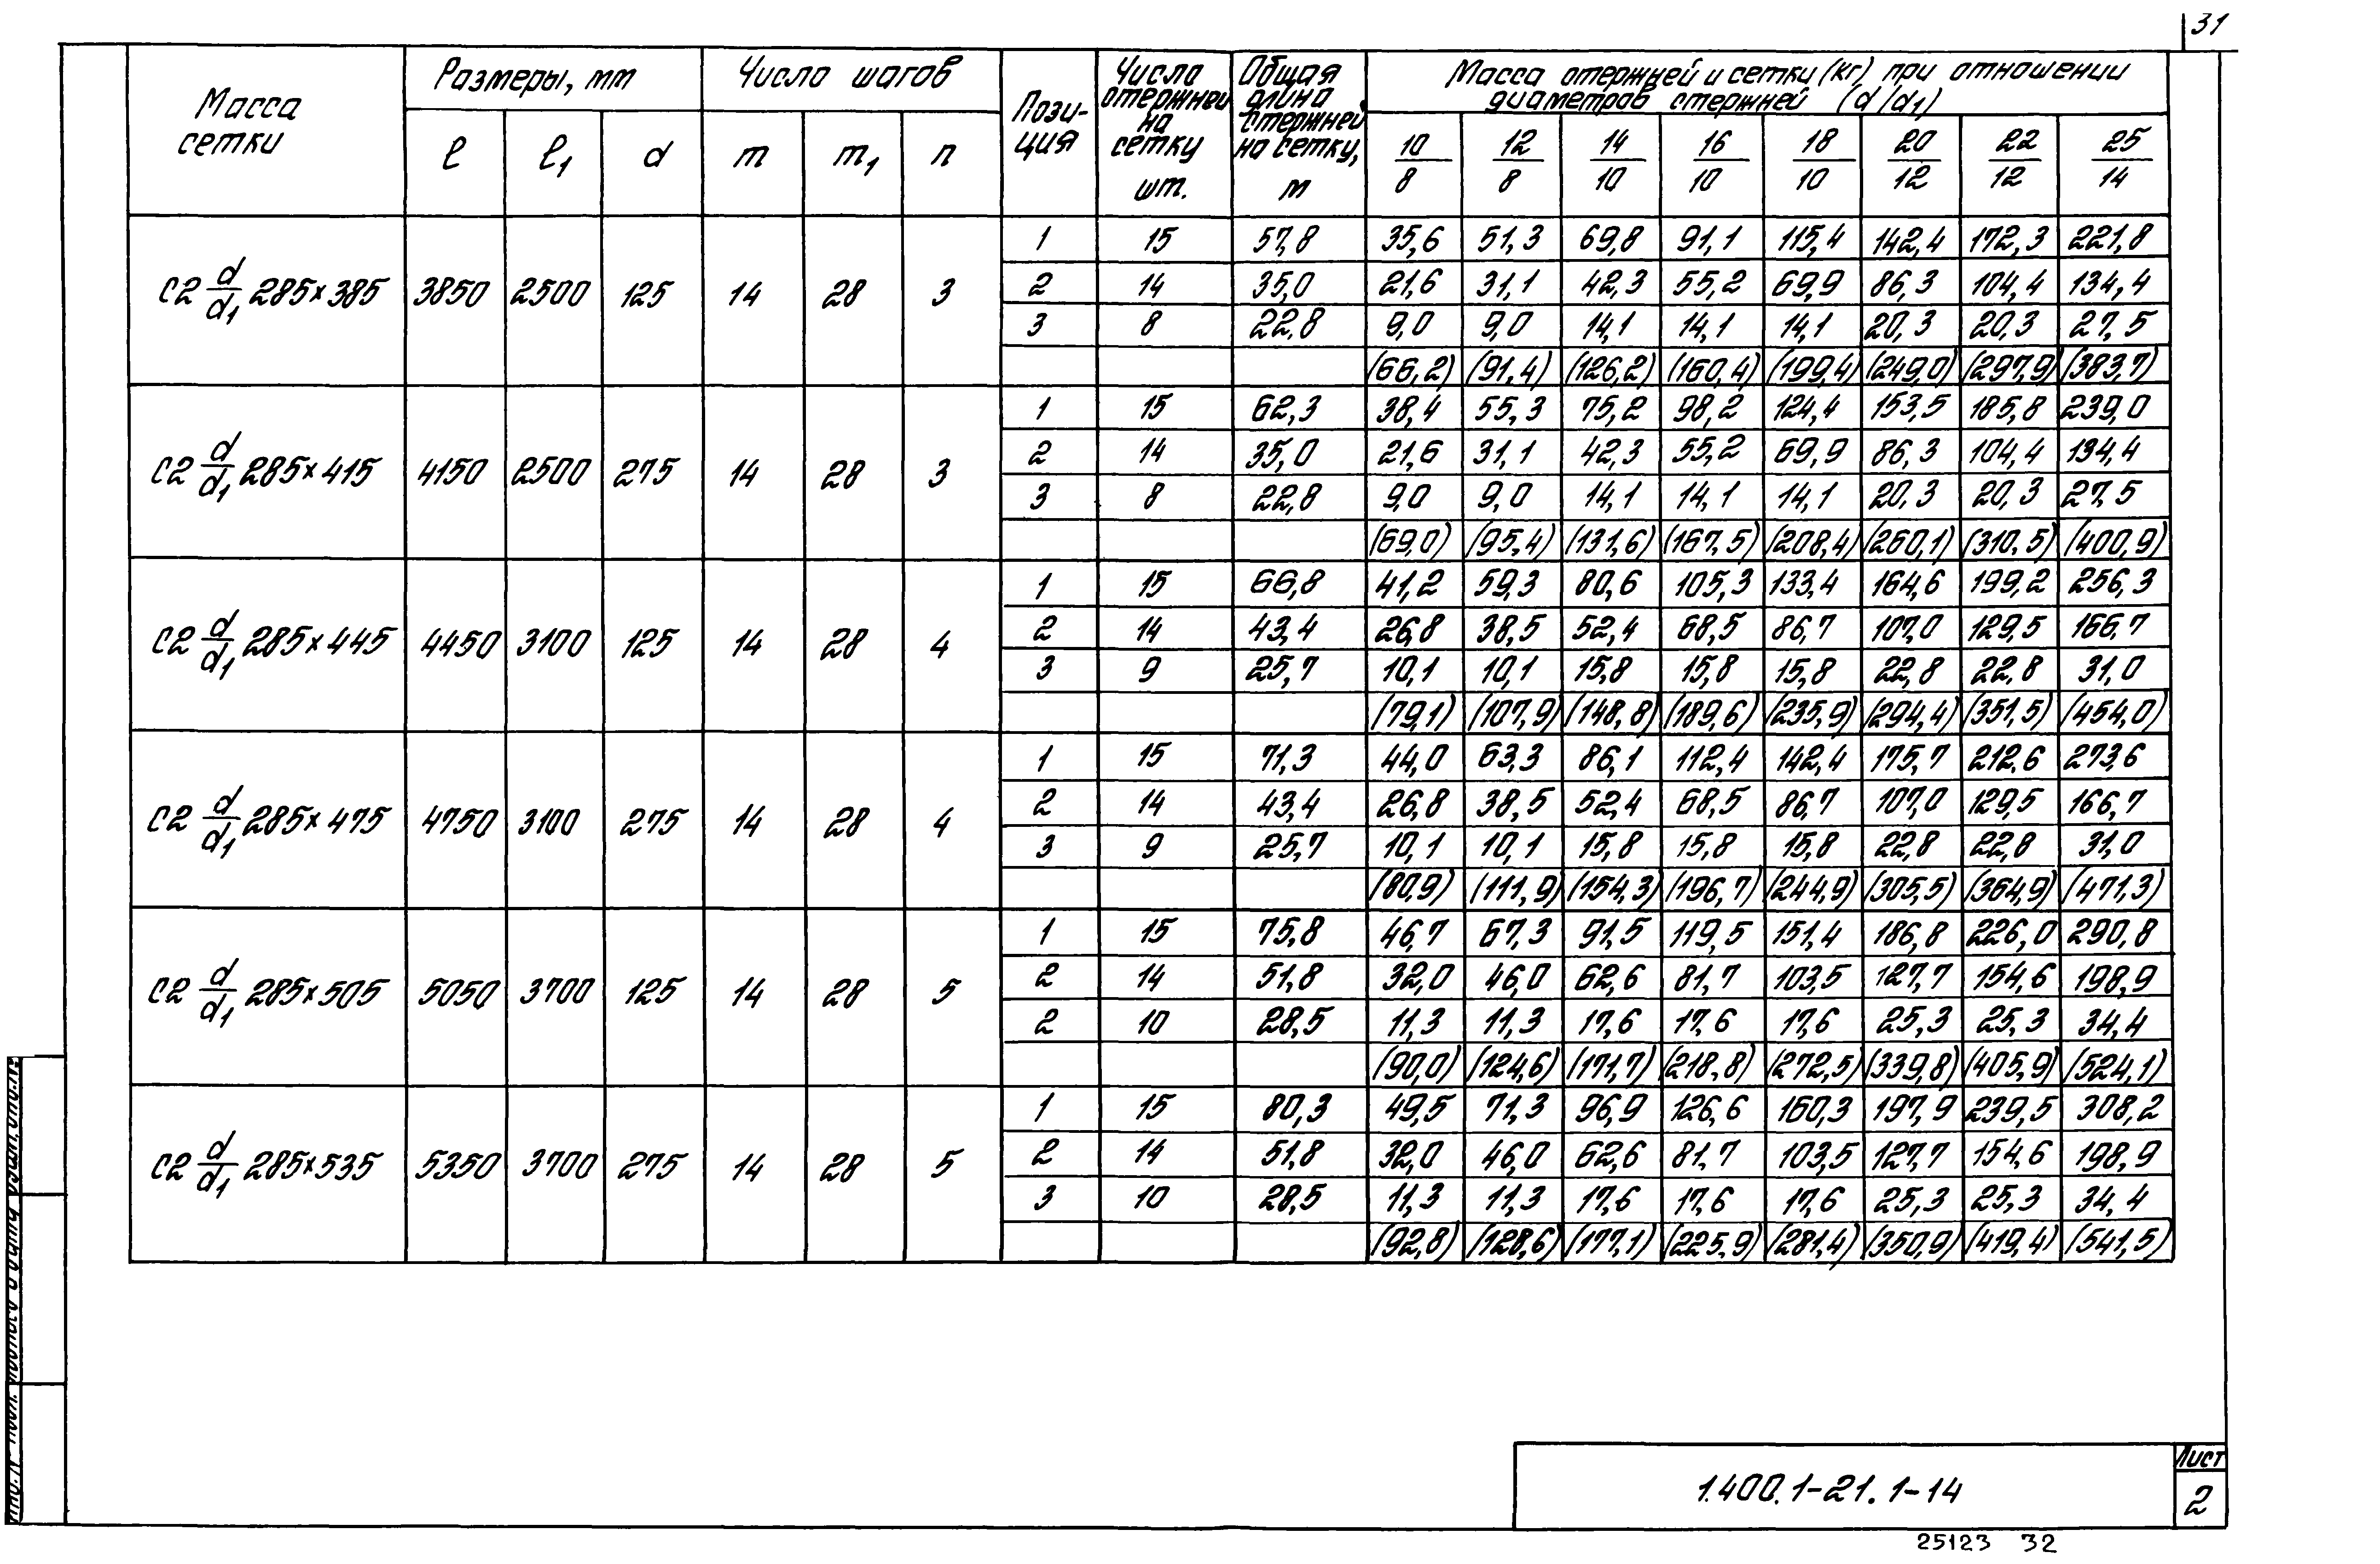 31
Масса сетки | Размеры, мм | Число шагов | Пози-ция | Число стержней на сетку шт. | Общая длина стержней на сетку, м | Масса стержней и сетки (кг) при отношении диаметров стержней (d/d1)
l | l1 | d | m | m1 | n | 10/8 | 12/8 | 14/10 | 16/10 | 18/10 | 20/12 | 22/12 | 25/14
С2 d/d1 285×385 | 3850 | 2500 | 125 | 14 | 28 | 3
1 | 15 | 57,8 | 35,6 | 51,3 | 69,8 | 91,1 | 115,4 | 142,4 | 172,3 | 221,8
2 | 14 | 35,0 | 21,6 | 31,1 | 42,3 | 55,2 | 69,9 | 86,3 | 104,4 | 134,4
3 | 8 | 22,8 | 9,0 | 9,0 | 14,1 | 14,1 | 14,1 | 20,3 | 20,3 | 27,5
(66,2) | (91,4) | (126,2) | (160,4) | (199,4) | (249,0) | (297,9) | (383,7)
С2 d/d1 285×415 | 4150 | 2500 | 275 | 14 | 28 | 3
1 | 15 | 62,3 | 38,4 | 55,3 | 75,2 | 98,2 | 124,4 | 153,5 | 185,8 | 239,0
2 | 14 | 35,0 | 21,6 | 31,1 | 42,3 | 55,2 | 69,9 | 86,3 | 104,4 | 134,4
3 | 8 | 22,8 | 9,0 | 9,0 | 14,1 | 14,1 | 14,1 | 20,3 | 20,3 | 27,5
(69,0) | (95,4) | (131,6) | (167,5) | (208,4) | (260,1) | (310,5) | (400,9)
С2 d/d1 285×445 | 4450 | 3100 | 125 | 14 | 28 | 4
1 | 15 | 66,8 | 41,2 | 59,3 | 80,6 | 105,3 | 133,4 | 164,6 | 199,2 | 256,3
2 | 14 | 43,4 | 26,8 | 38,5 | 52,4 | 68,5 | 86,7 | 107,0 | 129,5 | 166,7
3 | 9 | 25,7 | 10,1 | 10,1 | 15,8 | 15,8 | 15,8 | 22,8 | 22,8 | 31,0
(79,1) | (107,9) | (148,8) | (189,6) | (235,9) | (294,4) | (351,5) | (454,0)
С2 d/d1 285×475 | 4750 | 3100 | 275 | 14 | 28 | 4
1 | 15 | 71,3 | 44,0 | 63,3 | 86,1 | 112,4 | 142,4 | 175,7 | 212,6 | 273,6
2 | 14 | 43,4 | 26,8 | 38,5 | 52,4 | 68,5 | 86,7 | 107,0 | 129,5 | 166,7
3 | 9 | 25,7 | 10,1 | 10,1 | 15,8 | 15,8 | 15,8 | 22,8 | 22,8 | 31,0
(80,9) | (111,9) | (154,3) | (196,7) | (244,9) | (305,5) | (364,9) | (471,3)
С2 d/d1 285×505 | 5050 | 3700 | 125 | 14 | 28 | 5
1 | 15 | 75,8 | 46,7 | 67,3 | 91,5 | 119,5 | 151,4 | 186,8 | 226,0 | 290,8
2 | 14 | 51,8 | 32,0 | 46,0 | 62,6 | 81,7 | 103,5 | 127,7 | 154,6 | 198,9
2 | 10 | 28,5 | 11,3 | 11,3 | 17,6 | 17,6 | 17,6 | 25,3 | 25,3 | 34,4
(90,0) | (124,6) | (171,7) | (218,8) | (272,5) | (339,8) | (405,9) | (524,1)
С2 d/d1 285×535 | 5350 | 3700 | 275 | 14 | 28 | 5
1 | 15 | 80,3 | 49,5 | 71,3 | 96,9 | 126,6 | 160,3 | 197,9 | 239,5 | 308,2
2 | 14 | 51,8 | 32,0 | 46,0 | 62,6 | 81,7 | 103,5 | 127,7 | 154,6 | 198,9
3 | 10 | 28,5 | 11,3 | 11,3 | 17,6 | 17,6 | 17,6 | 25,3 | 25,3 | 34,4
(92,8) | (128,6) | (177,1) | (225,9) | (281,4) | (350,9) | (419,4) | (541,5)
1.400.1-21.1-14
Лист
2
25123 32